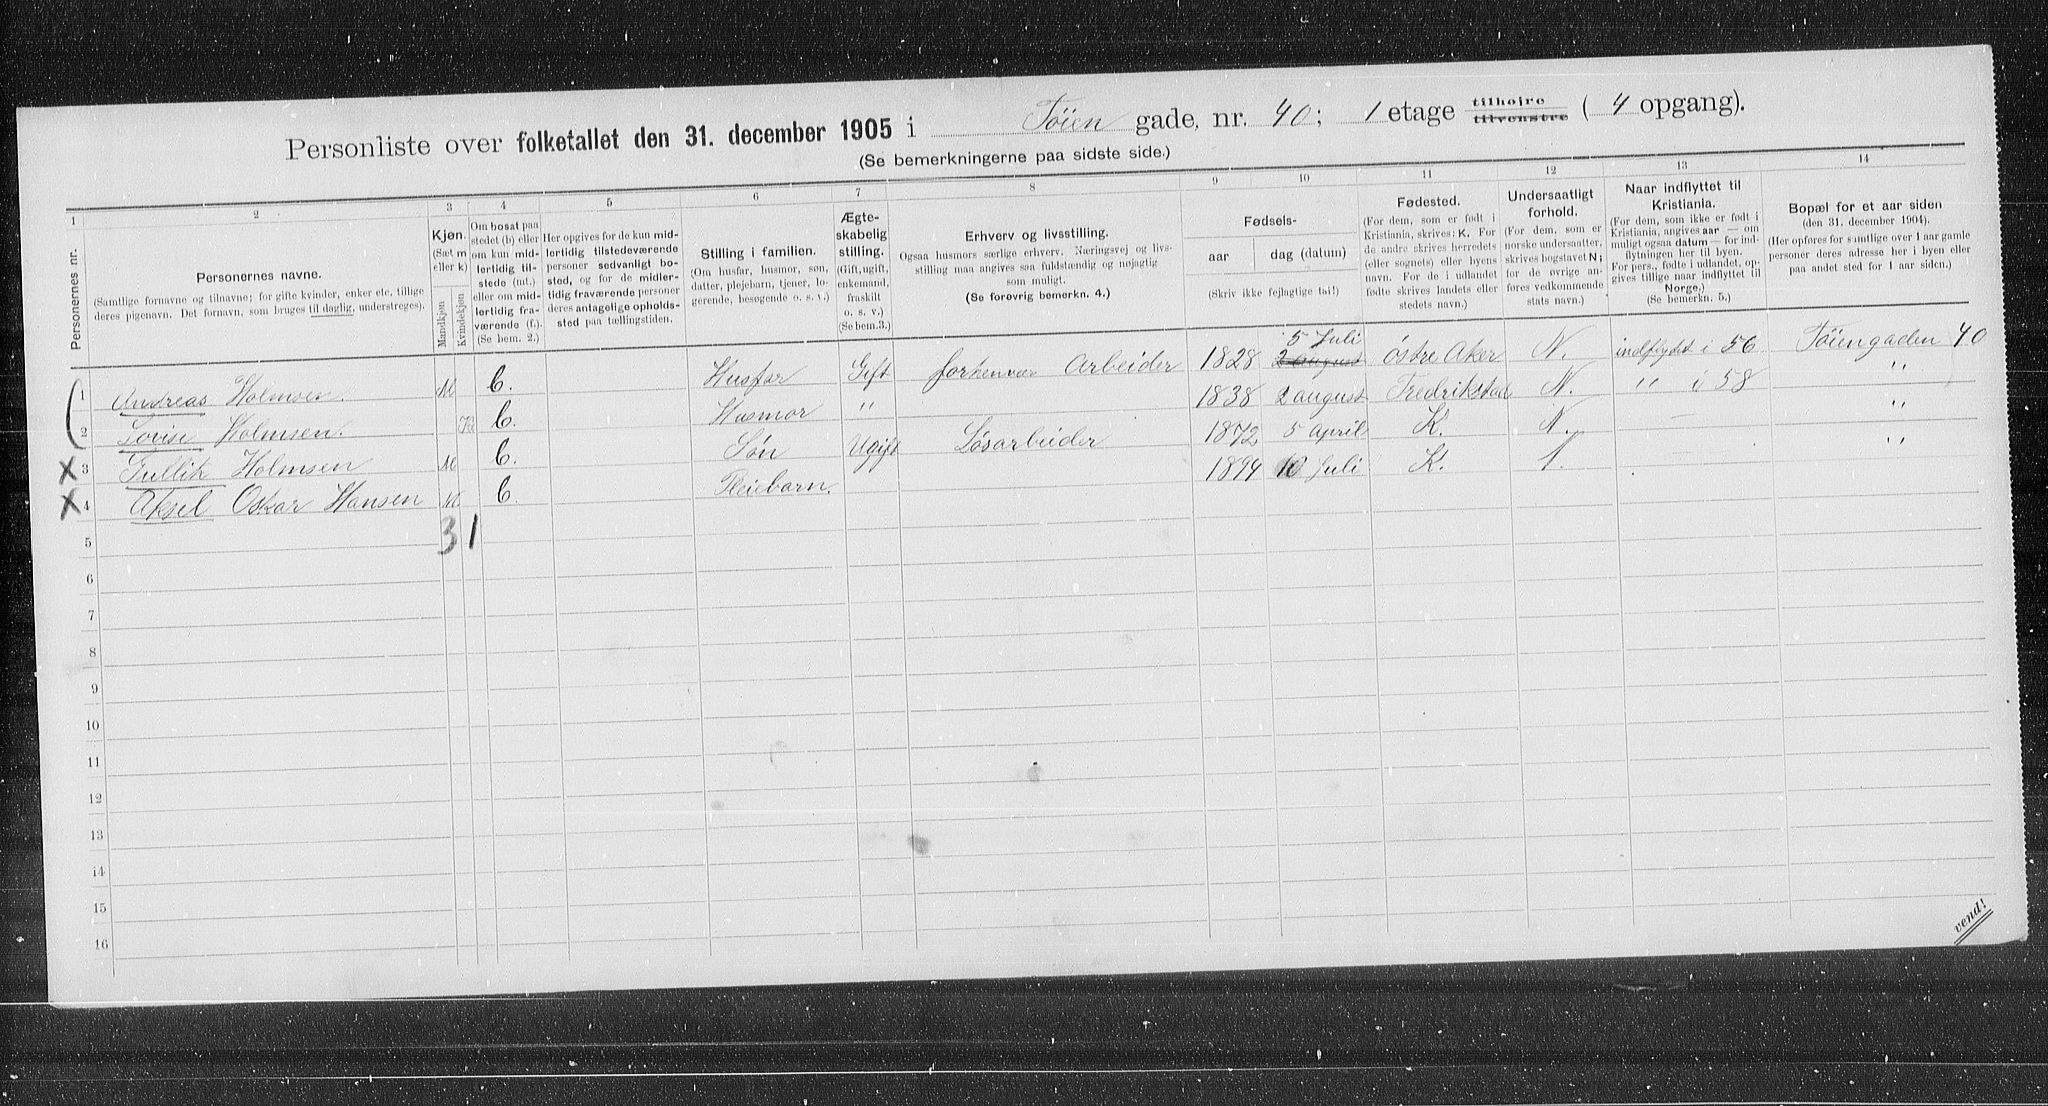 Personliste over folketallet den 31. december 1905 i Töien gade, nr. 40; 1 etage tilhøire tilvenstre (4 opgang).
(Se bemerkningerne paa sidste side.)
1 2 3 4 5 6 7 8 9 10 11 12 13 14
Personernes nr.
Personernes navne.
(Samtlige fornavne og tilnavne; for gifte kvinder, enker etc. tillige
deres pigenavn. Det fornavn, som bruges til daglig, understreges).
Kjøn.
(Sæt m
eller k)
Mandkjøn
Kvindekjøn
Om bosat paa
stedet (b) eller
om kun mid-
lertidig til-
stede (mt.)
eller om mid-
lertidig fra-
værende (f.).
(Se bem. 2.)
Her opgives for de kun mid-
lertidig tilstedeværende
personer sedvanligt bo-
sted, og for de midler-
tidig fraværende personer
deres antagelige opholds-
sted paa tællingstiden.
Stilling i familien.
(Om husfar, husmor, søn,
datter, plejebarn, tjener, lo-
gerende, besøgende o. s. v.)
Ægte-
skabelig
stilling.
(Gift, ugift,
enkemand,
fraskilt
o. s. v.)
(Se bem.3.)
Erhverv og livsstilling.
Ogsaa husmors særlige erhverv. Næringsvej og livs-
stilling maa angives saa fuldstændig og nøjagtig
som muligt.
(Se forøvrig bemerkn. 4.)
Fødsels-
aar dag (datum)
(Skriv ikke fejlagtige tal!)
Fødested.
(For dem, som er født i
Kristiania, skrives: K. For
de andre skrives herredets
(eller sognets) eller byens
navn. For de i udlandet
fødte skrives landets eller
stedets navn.)
Undersaatligt
forhold.
(For dem, som er
norske undersaatter,
skrives bogstavet N;
for de øvrige an-
føres vedkommende
stats navn.)
Naar indflyttet til
Kristiania.
(For dem, som ikke er født i
Kristiania, angives aar — om
muligt ogsaa datum — for ind-
flytningen her til byen.
For pers., fødte i udlandet, op-
gives tillige naar indflyttet til
Norge.)
(Se bemerkn. 5.)
Bopæl for et aar siden
(den 31. december 1904).
(Her opføres for samtlige over 1 aar gamle
personer deres adresse her i byen eller
paa andet sted for 1 aar siden.)
1 Andreas Holmsen. M b. Husfar Gift forhenvær Arbeider 1828 5 Juli 2 august östre Aker N. indflydt i 56 Töiengaden 40
2 Lovise Holmsen. K b. Husmor " 1838 2 august Fredrikstad N. " i 58 "
3 Gullik Holmsen M b. Søn Ugift Løsarbeider 1872 5 april K. N. — "
4 Aksel Oskar Hansen M b. Pleiebarn. 1894 10 Juli K. — "
3 1
5
6
7
8
9
10
11
12
13
14
15
16
vend!